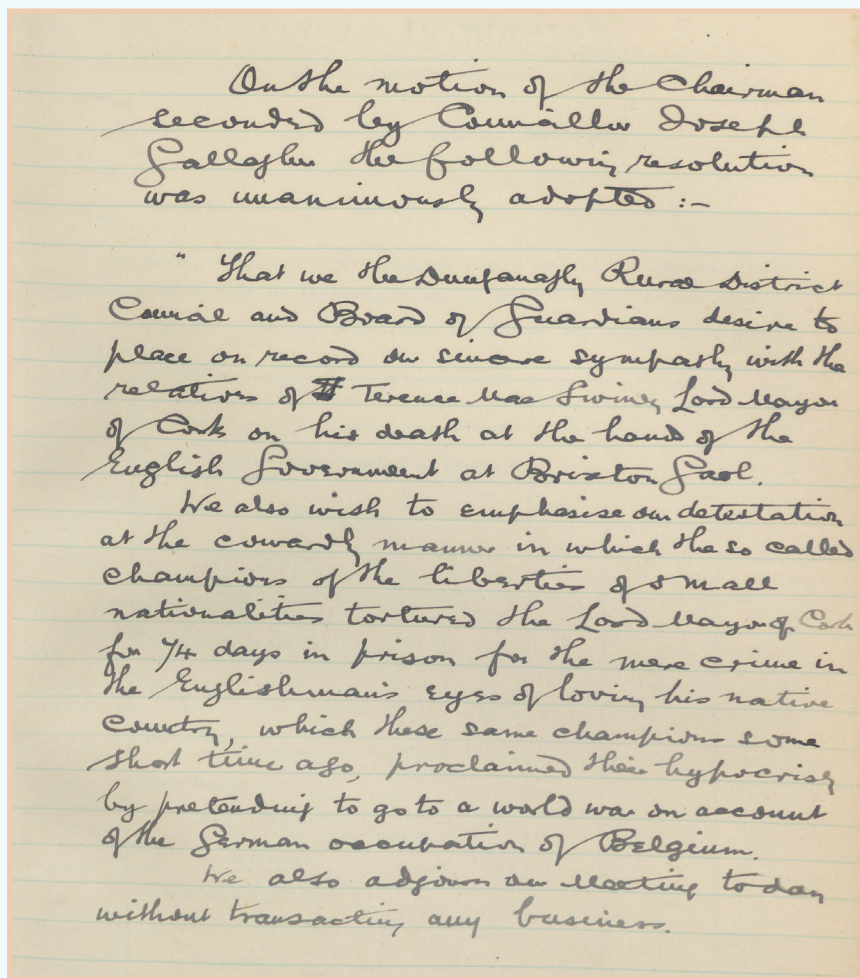 On the motion of the Chairman
seconded by Councillor Joseph
Gallagher the following resolution
was unanimously adopted :-
" That we the Dunfanaghy Rural District
Council and Board of Guardians desire to
place on record our sincere sympathy with the
relatives of Terence Mac Swiney Lord Mayor
of Cork on his death at the hand of the
English Government at Brixton Gaol.
We also wish to emphasise our detestation
at the cowardly manner in which the so called
champions of the liberties of small
nationalities tortured the Lord Mayor of Cork
for 74 days in prison for the mere crime in
the Englishman's eyes of loving his native
Country, which these same champions some
short time ago, proclaimed their hypocrisy
by pretending to go to a world war on account
of the German occupation of Belgium.
We also adjourn our Meeting today
without transacting any business.